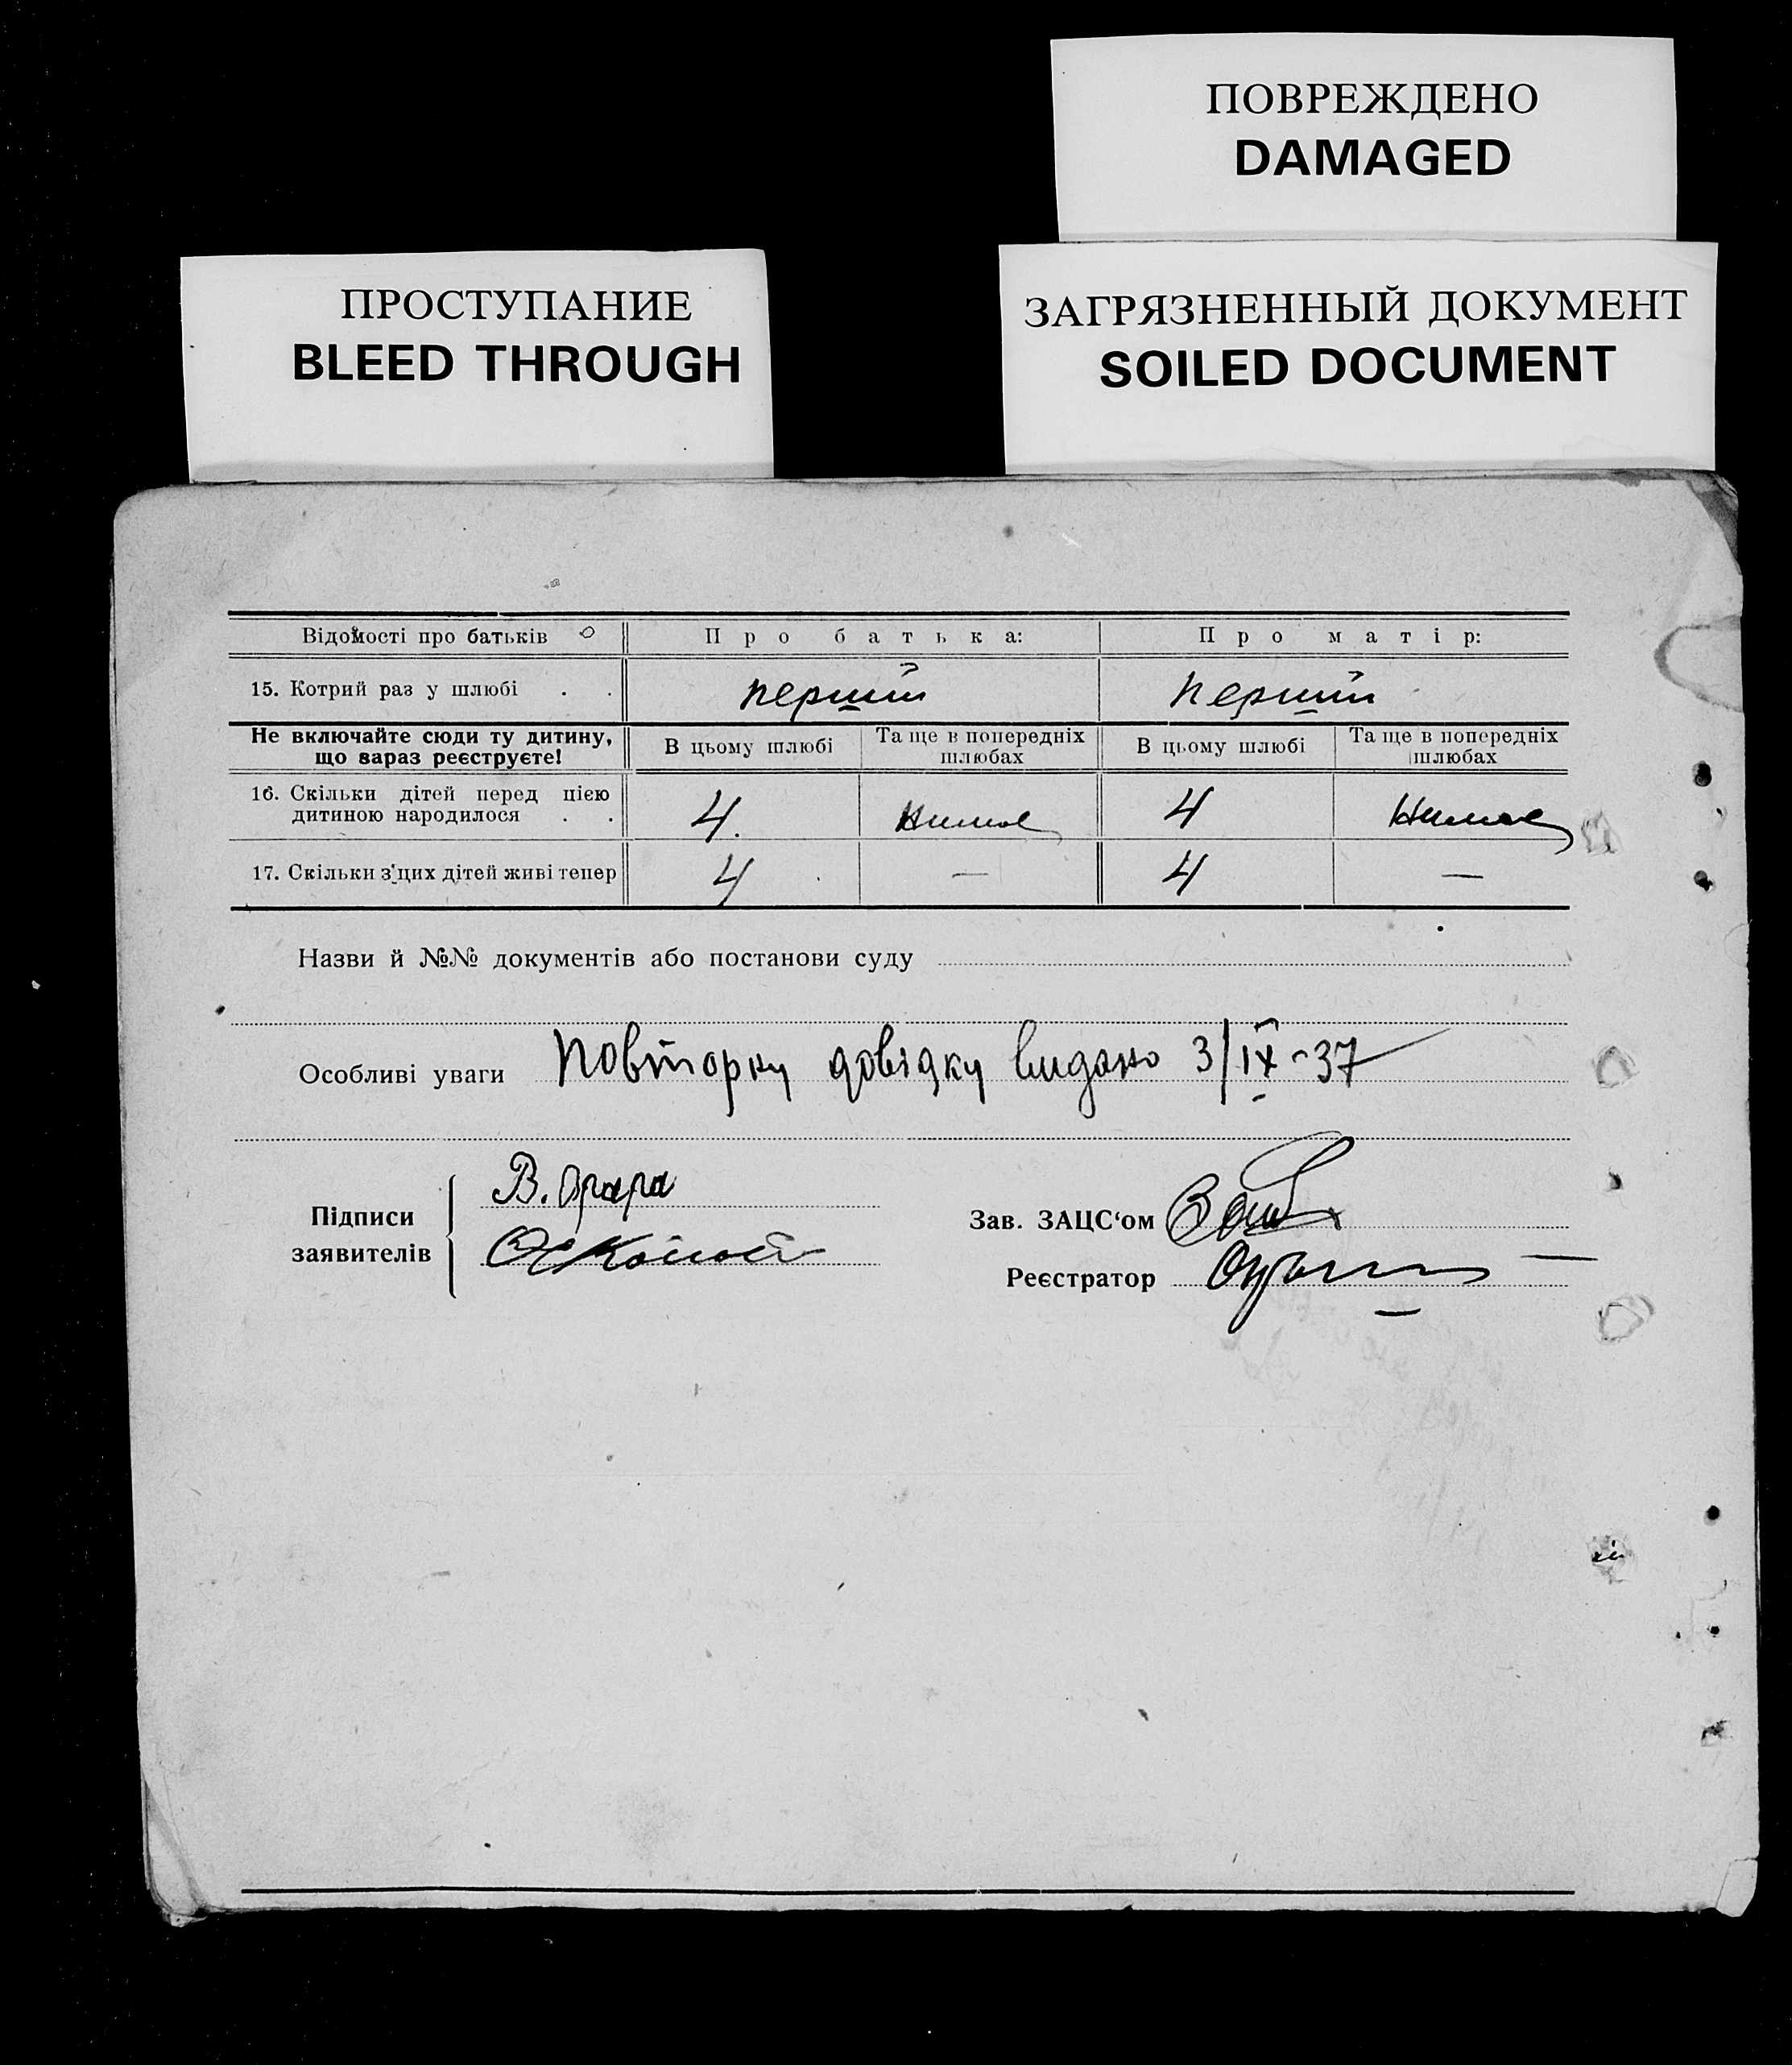 ПОВРЕЖДЕНО
DAMAGED
ПРОСТУПАНИЕ
BLEED THROUGH
ЗАГРЯЗНЕННЫЙ ДОКУМЕНТ
SOILED DOCUMENT
Відомості про батьків Про батька: Про матір:
15. Котрий раз у шлюбі . . перший перший
Не включайте сюди ту дитину, що вараз реєструєте! В цьому шлюбі Та ще в попередніх шлюбах В цьому шлюбі Та ще в попередніх шлюбах
16. Скільки дітей перед цією
дитиною народилося . . 4. Німає 4 Німає
17. Скільки з цих дітей живі тепер 4 — 4 —
Назви й №№ документів або постанови суду
Особливі уваги Повторку довідку видано 3/IX-37
Підписи заявителів В.
Зав. ЗАЦС‘ом
Реєстратор